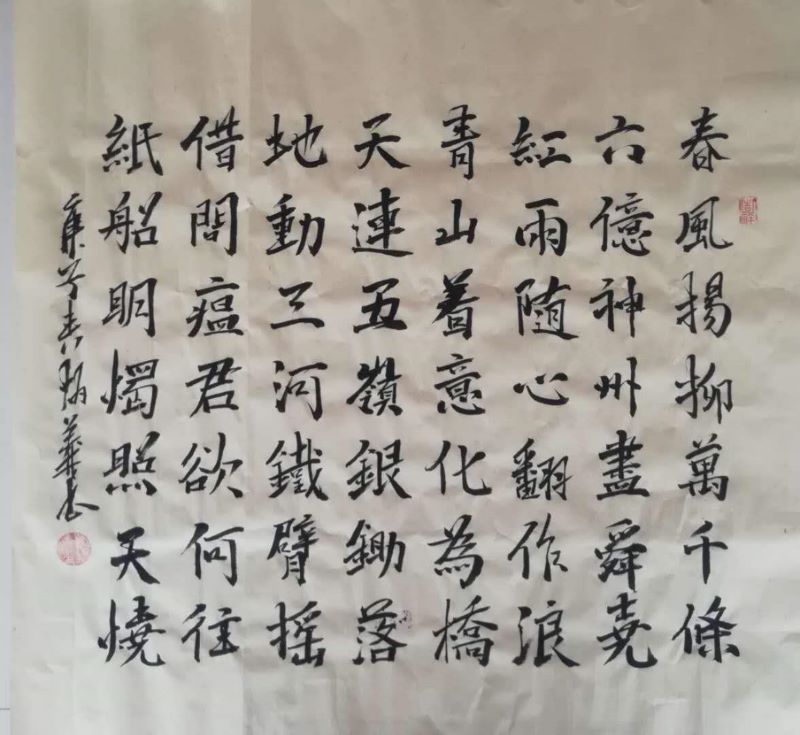 春風揚柳萬千條
六億神州盡舜堯
紅雨隨心翻作浪
青山着意化為橋
天連五嶺銀鋤落
地動三河鐵臂摇
借問瘟君欲何往
紙船明燭照天燒